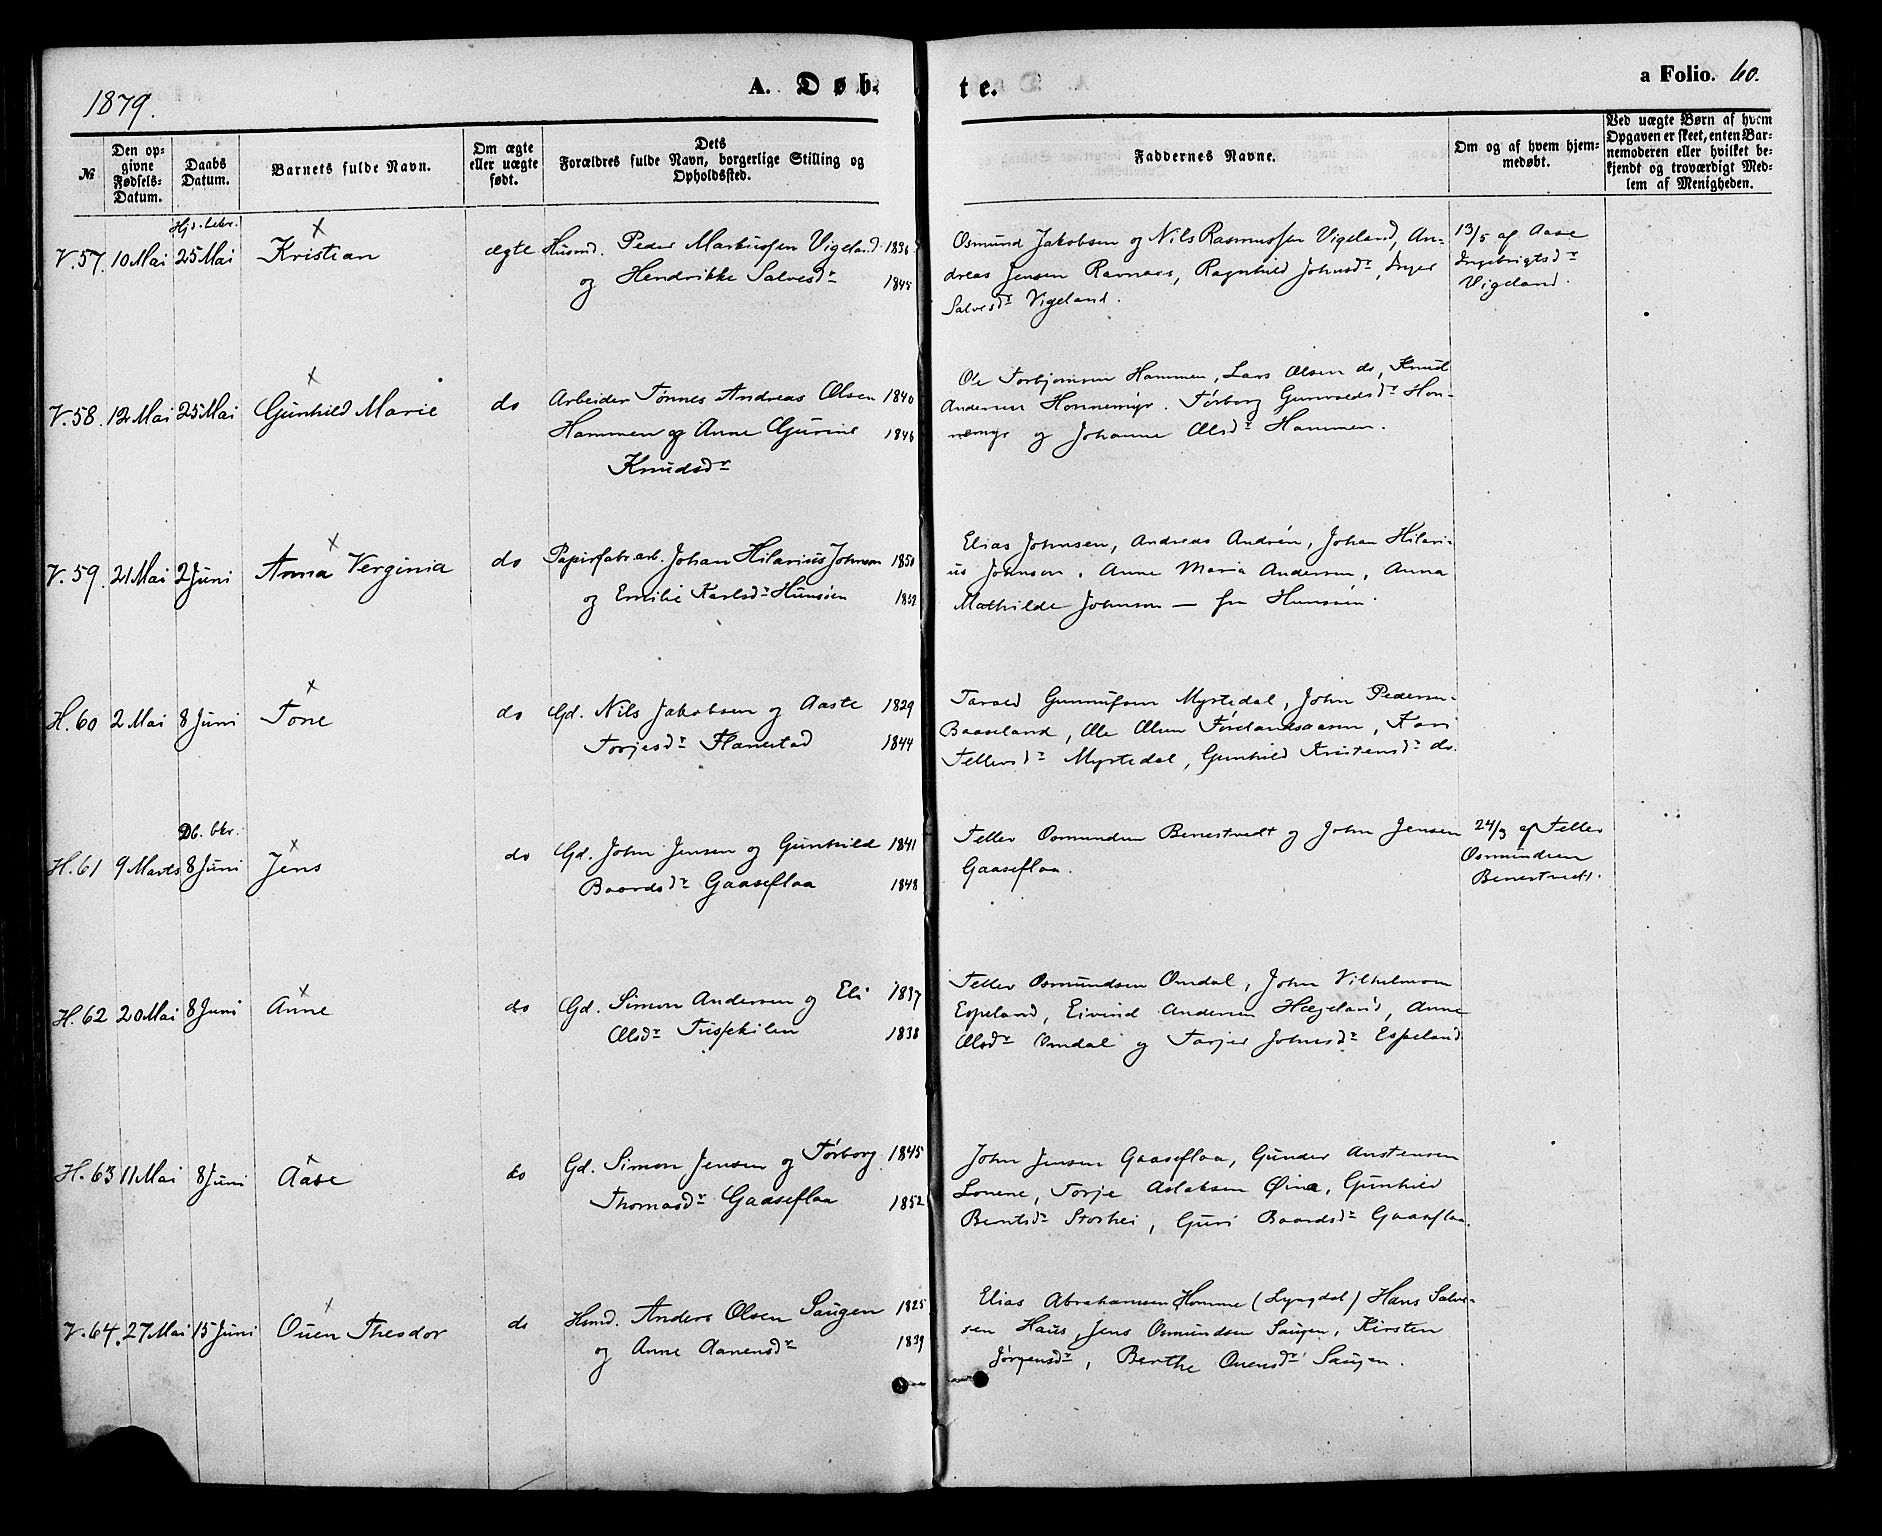 1879.
A. Døb-
te.
a Folio. 60.
№
Den op-
givne
Fødsels-
Datum.
Daabs
Datum.
Barnets fulde Navn.
Om ægte
eller uægte
født.
Dets
Forældres fulde Navn, borgerlige Stilling og
Opholdssted.
Faddernes Navne.
Om og af hvem hjem-
medøbt.
Ved uægte Børn af hvem
Opgaven er skeet, enten Bar-
nemoderen eller hvilket be-
kjendt og troværdigt Med-
lem af Menigheden.
V. 57. 10 Mai
25 Mai
Kristian
ægte
Husmd. Peder Markussen Vigeland 1836
og Hendrikke Salvesdr 1845
Osmund Jakobsen og Nils Rasmussen Vigeland, An-
dreas Jensen Ravnaas, Ragnhild Johnsdr, Inger
Salvesdr Vigeland.
13/5 af Aase
Ingebrigtsdr
Vigeland.
V. 58. 12 Mai 25 Mai
Gunhild Marie
do
Arbeider Tønnes Andreas Olsen 1840
Hammen og Anne Gurine 1846
Knudsdr
Ole Torbjørnsen Hammen, Lars Olsen do, Knud
Andersen Honnemyr. Tørborg Gunvaldsdr Hon-
nemyr og Johanne Olsdr Hammen.
V. 59. 21 Mai 2 Juni
Anna Verginia
do
Papirfabr.arb. Johan Hilarius Johnson 1850
og Emilie Karlsdr Hunsøen
Elias Johnsen, Andreas Andrén, Johan Hilari-
us Johnson, Anne Maria Andersen, Anna
Mathilde Johnson — fra Hunsøen.
H. 60 2 Mai 8 Juni
Tone
do
Gd. Nils Jakobsen og Aaste 1829
Torjesdr Flanestad 1844
Tarald Gunnufsen Myrtedal, John Pedersen
Baaseland, Ole Olsen Førelandsaasen, Kari
Tellevsdr Myrtedal, Gunhild Kristensdr do.
Db. bkr.
H. 61 9 Marts 8 Juni
Jens
do
Gd. John Jensen og Gunhild 1841
Baardsdr Gaaseflaa 1848
Tellev Osmundsen Benestvedt og John Jensen
Gaaseflaa.
24/3 af Tellev
Osmundsen
Benestvedt.
H. 62 20 Mai 8 Juni
Anne
do
Gd. Simon Andersen og Eli 1837
Olsdr Tussekilen 1838
Tellev Osmundsen Omdal, John Vilhelmsen
Espeland, Eivind Andersen Hægeland, Anne
Olsdr Omdal og Torjer Johnsdr Espeland
H. 63 11 Mai 8 Juni
Aase
do
Gd. Simon Jensen og Tørborg 1845
Thomasdr Gaaseflaa 1852
John Jensen Gaaseflaa, Gunder Austensen
Lonene, Torje Aslaksen Øina, Gunhild
Berntsdr Storhei, Guri Baardsdr Gaaseflaa.
V. 64. 27 Mai 15 Juni
Ouen Theodor
do
Husmd. Anders Olsen Saugen 1825
og Anne Aanensdr 1839
Elias Abrahamsen Homme (Lyngdal) Hans Salve-
sen Haus, Jens Osmundsen Saugen, Kirsten
Jørgensdr, Berthe Ouensdr Saugen.